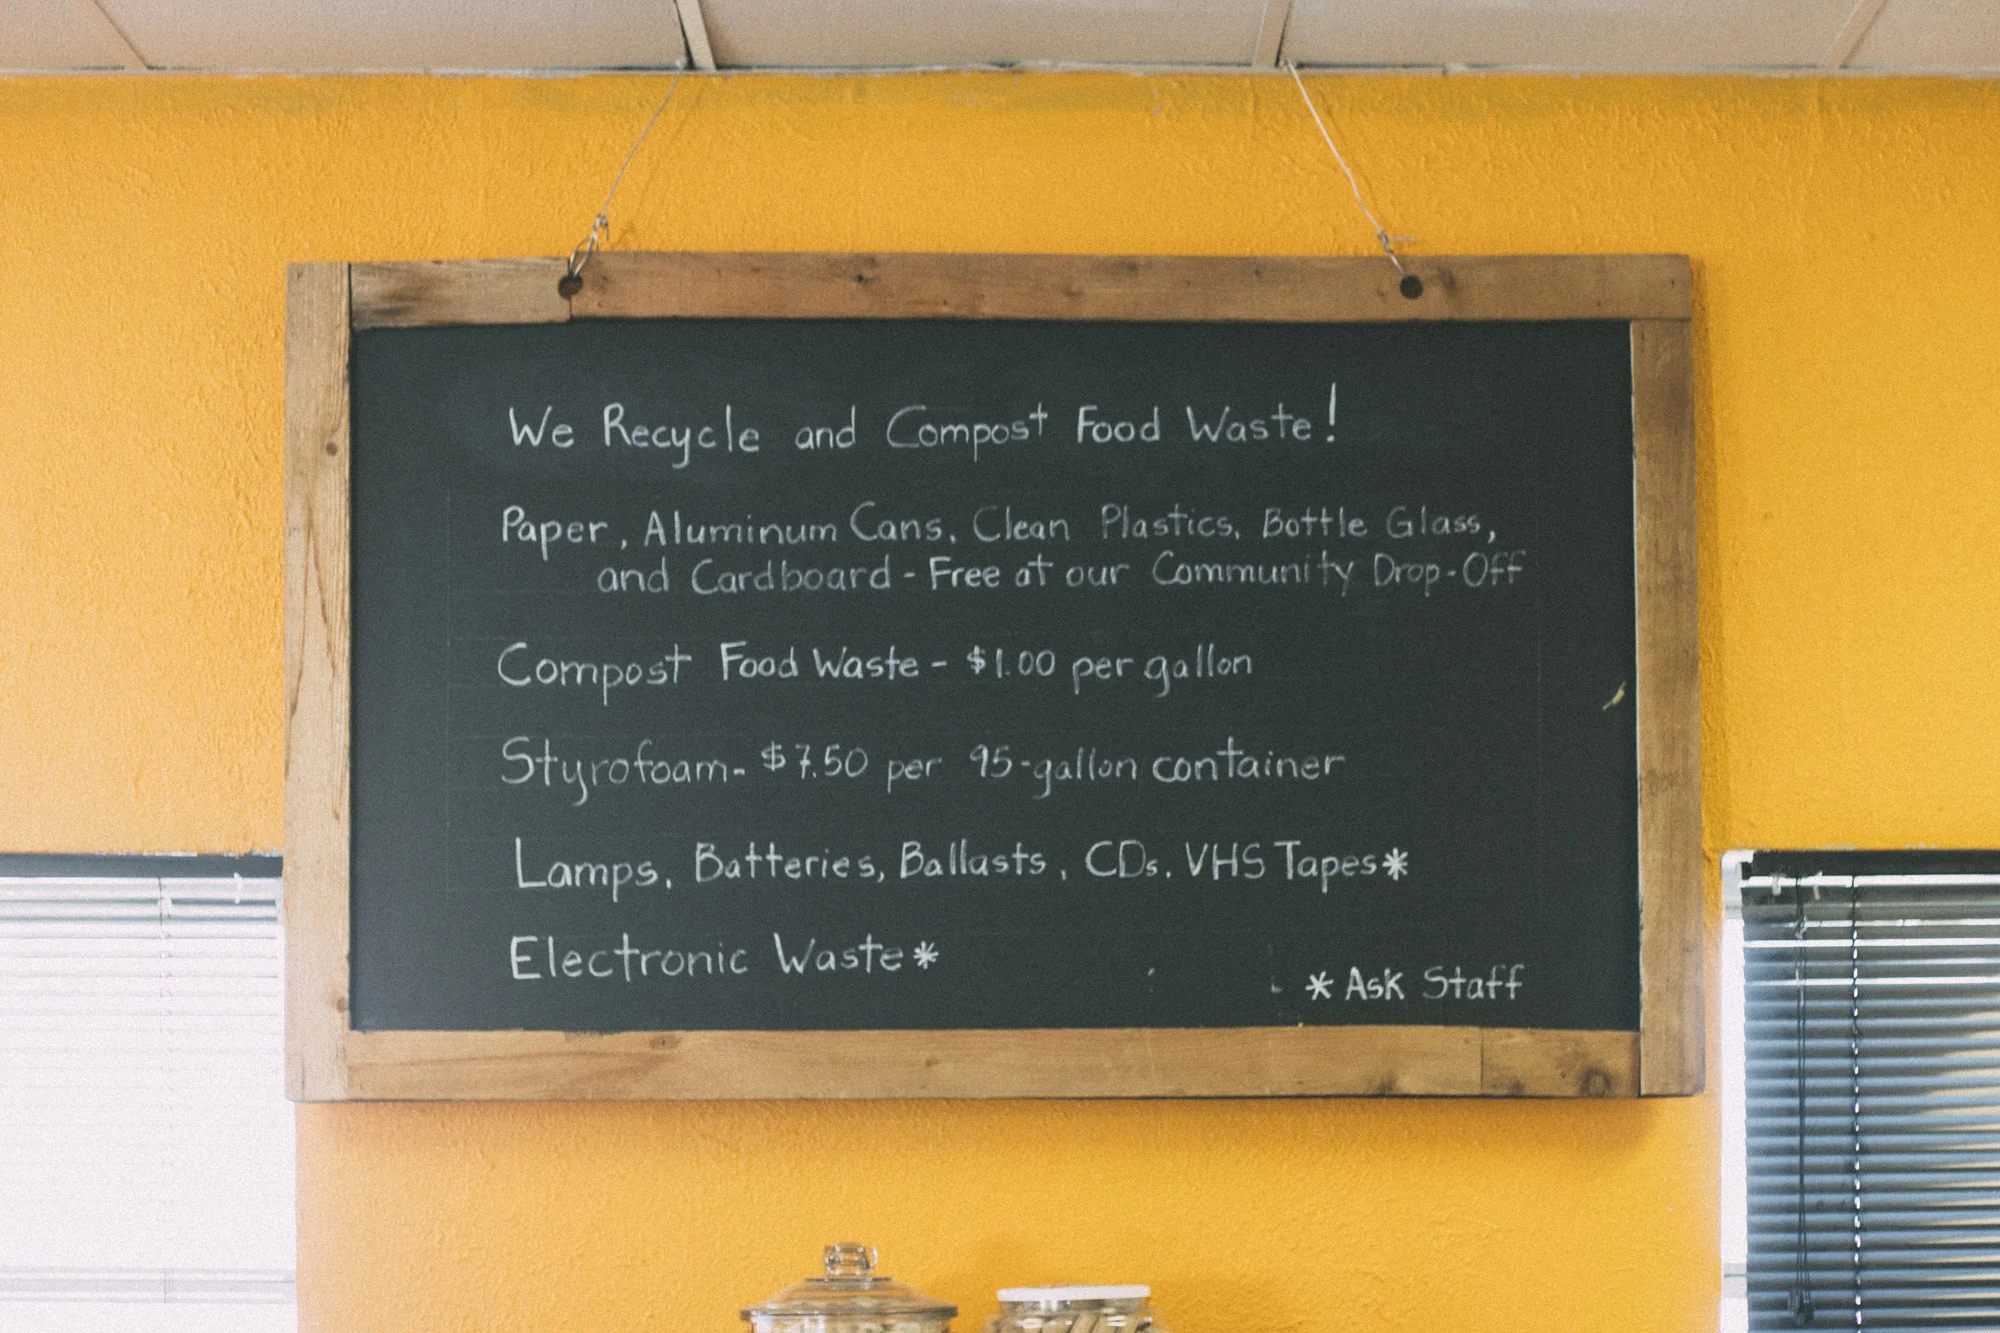 We Recycle and Compost Food Waste!
Paper, Aluminum Cans, Clean Plastics, Bottle Glass,
and Cardboard - Free at our Community Drop-Off
Compost Food Waste - $1.00 per gallon
Styrofoam- $7.50 per 95-gallon container
Lamps, Batteries, Ballasts, CDs, VHS Tapes*
Electronic Waste*
*Ask Staff